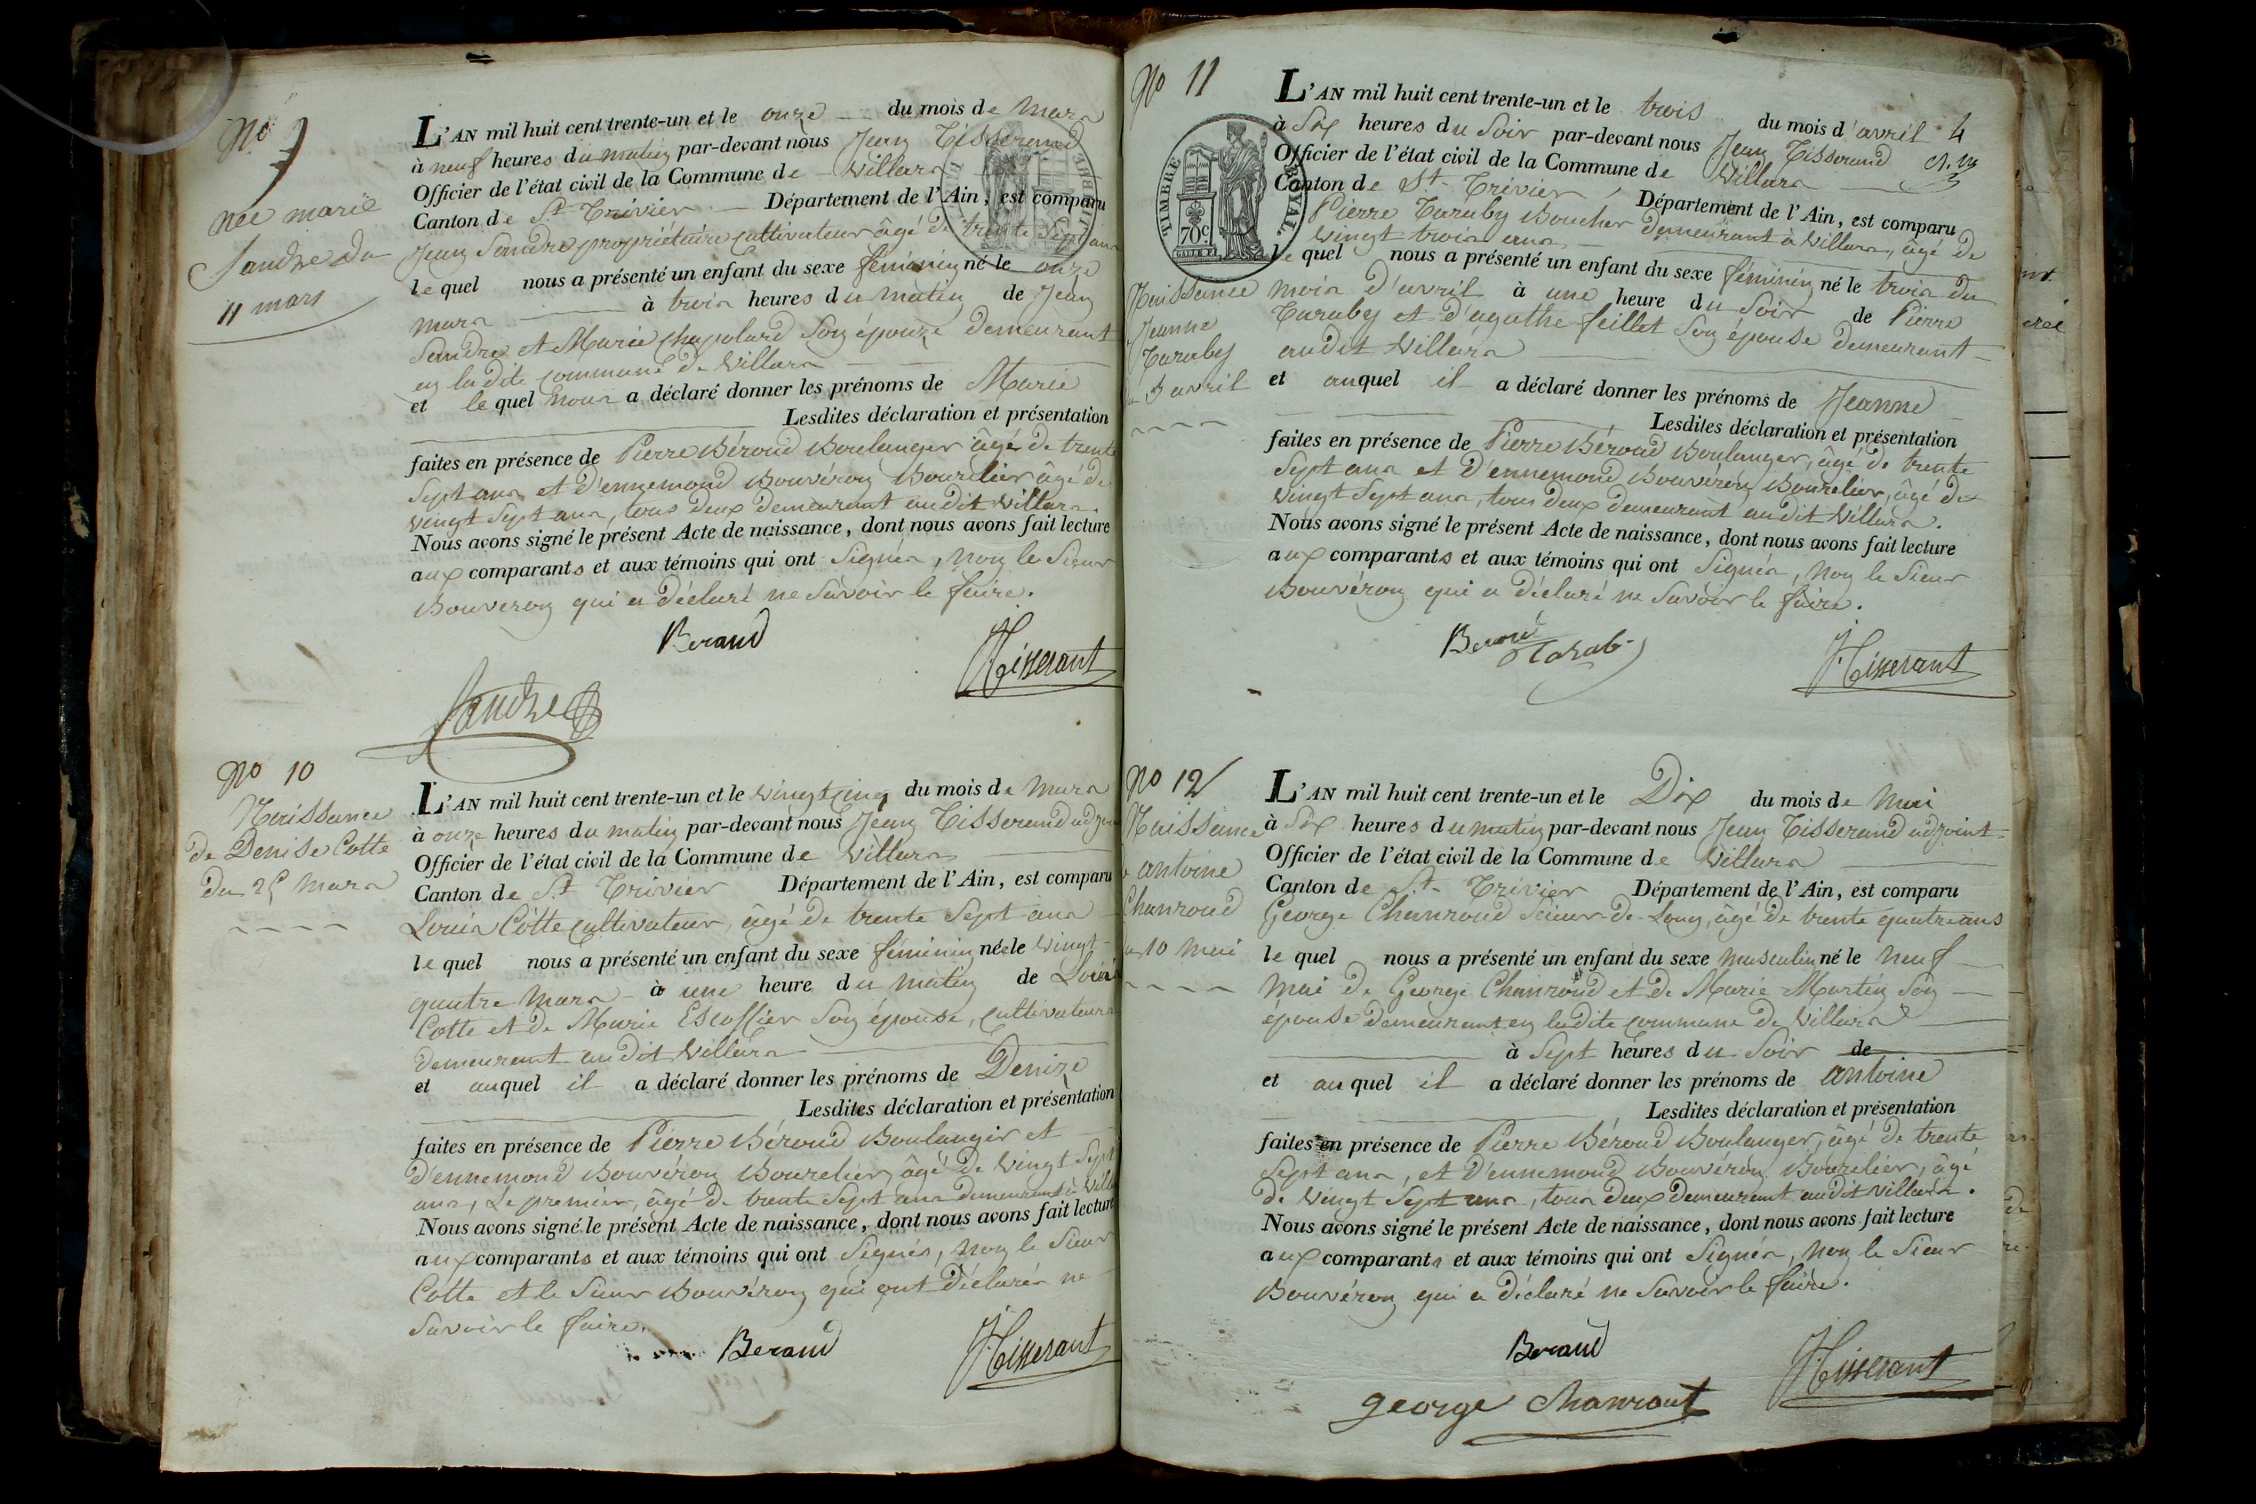 No 9
née marie
Sandre du
11 mars
L'AN mil huit cent trente-un et le onze du mois de Mars
à neuf heures du matin par-devant nous Jean Tisserand
Officier de l'état civil de la Commune de Villars
Canton de St Trévier Département de l'Ain, est comparu
Jean Sandre propriétaire cultivateur âgé de trente sept ans
lequel nous a présenté un enfant du sexe féminin né le onze
mars à trois heures du matin de Jean
Sandre et Marie Chapolard son épouze demeurant
en ladite commune de Villars
et le quel nous a déclaré donner les prénoms de Marie
Lesdites déclaration et présentation
faites en présence de Pierre Béroud Boulanger âgé de trente
Sept ans et d'ennemond Bouvéron Bourelier âgé de
vingt Sept ans, tous deux demeurant audit Villars.
Nous avons signé le présent Acte de naissance, dont nous avons fait lecture
aux comparants et aux témoins qui ont Signés, Non le Sieur
Bouveron qui a déclaré ne Savoir le faire.
Beraud
JTisserant
Sandre
No 10
Naissance
de Denise Cotte
du 25 Mars
L'AN mil huit cent trente-un et le vingt cinq du mois de Mars
à onze heures du matin par-devant nous Jean Tisserand adjoin
Officier de l'état civil de la Commune de Villars
Canton de St Trévier Département de l'Ain, est comparu
Louis Cotte Cultivateur, âgé de trente Sept ans
lequel nous a présenté un enfant du sexe féminin néele vingt-
quatre Mars à une heure du matin de Louis
Cotte et de Marie Escoffier Son épouse, Cultivateurs
demeurant audit Villars
et auquel il a déclaré donner les prénoms de Denize
Lesdites déclaration et présentation
faites en présence de Pierre Béroud Boulanger et
d'ennemond Bouvéron Bourelier, âgé de vingt Sept
ans, Le premier, âgé de trente Sept ans demeurant à Villa
Nous avons signé le présent Acte de naissance, dont nous avons fait lecture
aux comparants et aux témoins qui ont Signés, Non le Sieur
Cotte et le Sieur Bouvéron qui ont déclarés ne
Savoir le faire.
Beraud
JTisserant
No 11
TIMBRE ROYAL
70c.
Naissance
Jeanne
Taraby
3 avril
L'AN mil huit cent trente-un et le trois du mois d'avril 4
à Six heures du Soir par-devant nous Jean Tisserand
Officier de l'état civil de la Commune de Villars
Canton de St Trévier, Département de l'Ain, est comparu
Pierre Taraby Boucher demeurant à Villars, âgé de
vingt trois ans
le quel nous a présenté un enfant du sexe féminin né le trois du
mois d'avril à une heure du Soir de Pierre
Taraby et d'agathe feillet Son épouse demeurant
audit Villars
et auquel il a déclaré donner les prénoms de Jeanne
Lesdites déclaration et présentation
faites en présence de Pierre Béroud Boulanger, âgé de trente
Sept ans et d'ennemond Bouvéron Bourelier, âgé de
vingt Sept ans, tous deux demeurant audit Villars.
Nous avons signé le présent Acte de naissance, dont nous avons fait lecture
aux comparants et aux témoins qui ont Signés, Non le Sieur
Bouvéron qui a déclaré ne Savoir le faire.
Beroud
Tarabi
JTisserant
No 12
Naissance
antoine
Chanroud
10 Mai
L'AN mil huit cent trente-un et le Dix du mois de Mai
à Six heures du matin par-devant nous Jean Tisserand adjoint
Officier de l'état civil de la Commune de Villars
Canton de St Trévier Département de l'Ain, est comparu
George Chanroud Scieur de Long, âgé de trente quatre ans
le quel nous a présenté un enfant du sexe masculin né le neuf
Mai de George Chanroud et de Marie Martin Son
epouse demeurant en ladite commune de Villars
à Sept heures du Soir de
et au quel il a déclaré donner les prénoms de antoine
Lesdites déclaration et présentation
faites en présence de Pierre Béroud Boulanger, âgé de trente
Sept ans, et d'ennemond Bouvéron Bourelier, âgé
de vingt Sept ans, tous deux demeurant audit Villars.
Nous avons signé le présent Acte de naissance, dont nous avons fait lecture
aux comparants et aux témoins qui ont Signés, Non le Sieur
Bouvéron qui a déclaré ne Savoir le faire.
Beraud
JTisserant
george Chanrout